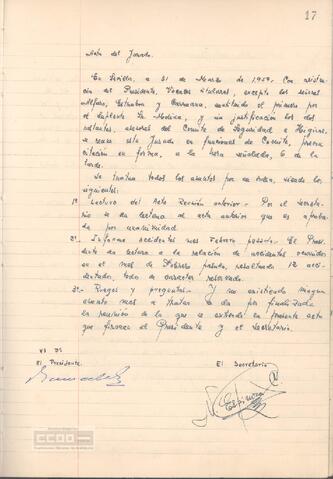 17
Acta del Jurado.
En Sevilla, a 31 de Marzo de 1.959. Con asisten-
cia del Presidente, Vocales titulares, excepto los señores
Alfaro, Estrubia y Carmona, sustituido el primero por
el suplente La Medica, y sin justificación los dos
restantes, además del Comité de Seguridad e Higiene,
se reune este Jurado en funciones de Comité, previa
citación en forma, a la hora señalada, 6 de la
tarde.
Se tratan todos los asuntos por su orden, siendo los
siguientes:
1º Lectura del Acta Reunión anterior. - Por el secreta-
rio se da lectura al acta anterior que es aproba-
da por unanimidad.
2º Informe accidentes mes Febrero pasado. - El Presi-
dente da lectura a la relación de accidentes ocurridos
en el mes de Febrero pasado, resultando 12 acci-
dentados, todos de carácter reservado.
3º - Ruegos y preguntas. - Y no existiendo ningun
asunto mas a tratar se da por finalizada
la reunión de la que se extiende la presente acta
que firman el Presidente y el Secretario.
Vº Bº
El Presidente.
El Secretario
Espinosa
CCOO